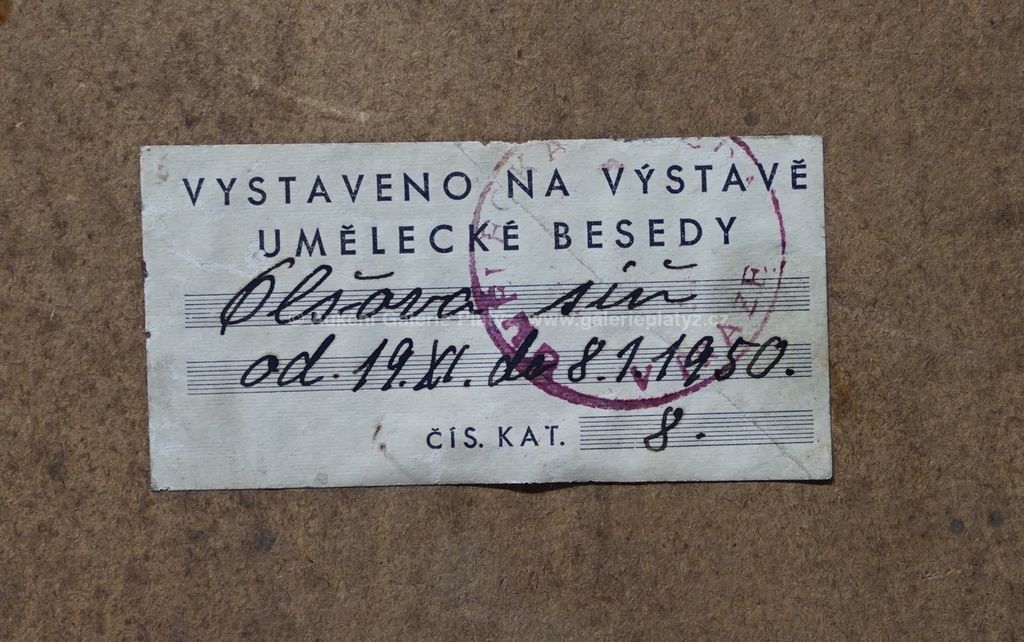 VYSTAVENO NA VÝSTAVĚ
UMĚLECKÉ BESEDY
Olšova síň
od. 19.XI. do 8.1.1950.
ČÍS. KAT. 8.
www.galerieplatyz.cz
V PRAZE